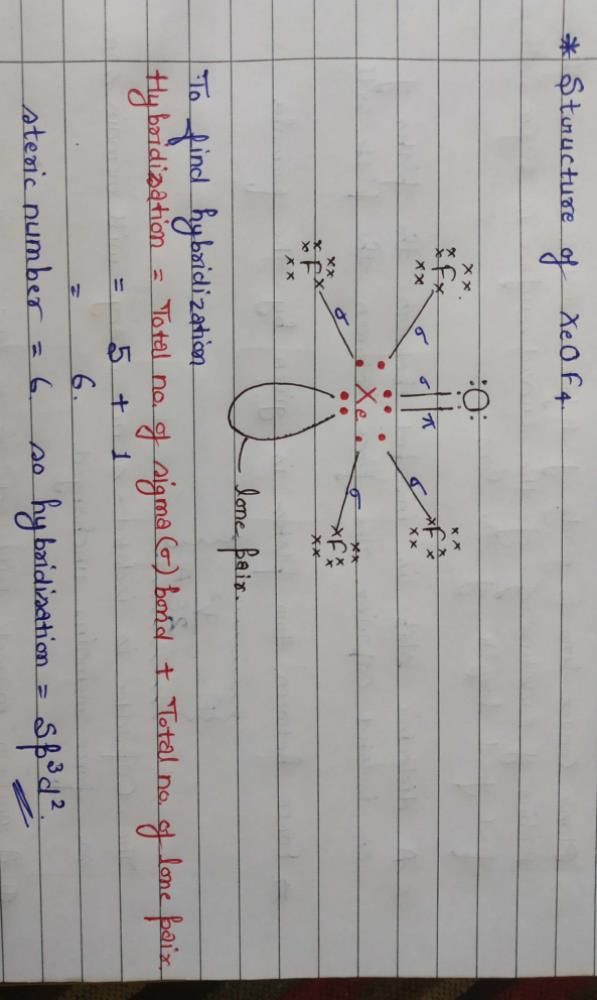 * Structure of XeOF4.
O
F σ σ π σ F
Xe
F σ σ F
lone pair.
To find hybridization
Hybridization = Total no. of sigma (σ) bond + Total no. of lone pair.
= 5 + 1
= 6.
steric number = 6. so hybridization = Sp³d².